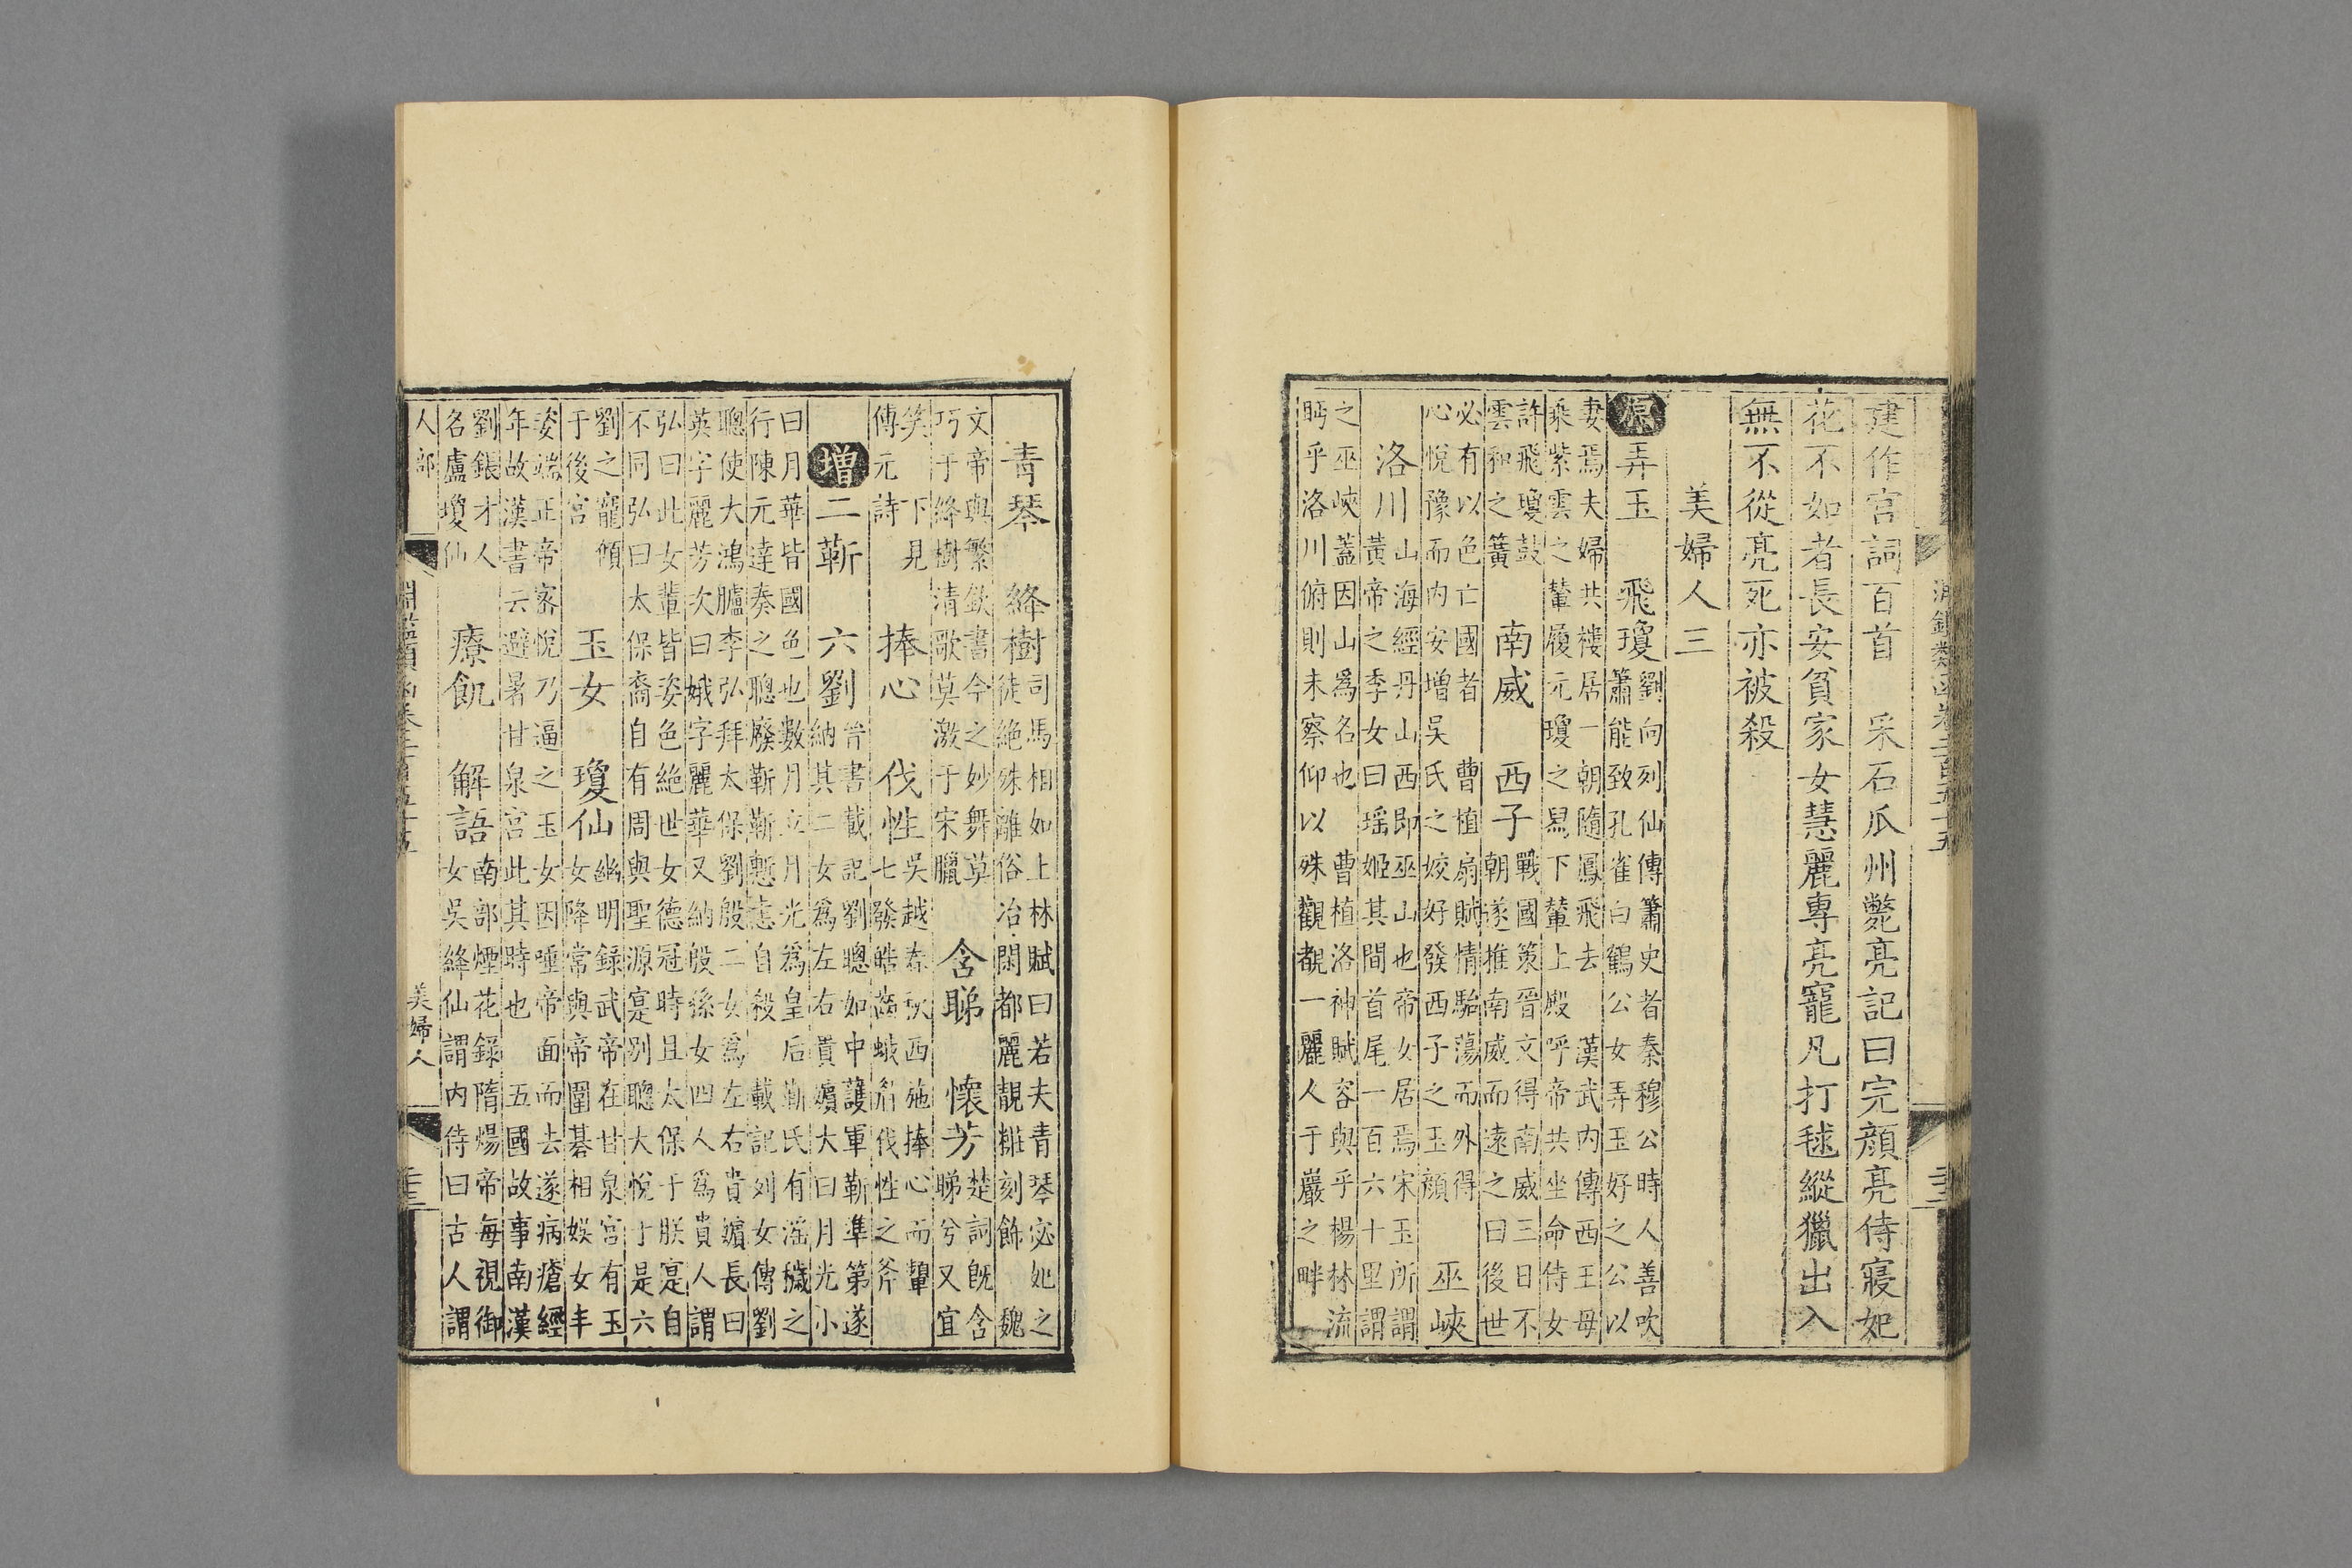 淵鑑類函卷二百五十五
建作宮詞百首　采石瓜州斃亮記曰完顔亮侍寢妃
花不如者長安貧家女慧麗專亮寵凡打毬縱獵出入
無不從亮死亦被殺
美婦人三
原弄玉　飛瓊
劉向列仙傳簫史者秦穆公時人善吹
簫能致孔雀白鶴公女弄玉好之公以
妻焉夫婦共樓居一朝隨鳳飛去　漢武内傳西王母
乘紫雲之輦履元瓊之舄下輦上殿呼帝共坐命侍女
許飛瓊鼓
雲和之簧
南威　西子
戰國策晉文得南威三日不
朝遂推南威而遠之曰後世
必有以色亡國者　曹植扇賦情駘蕩而外得
心悅豫而内安增吳氏之姣好發西子之玉顔
巫峽
洛川
山海經丹山西即巫山也帝女居焉宋玉所謂
黃帝之季女曰瑶姬其間首尾一百六十里謂
之巫峽蓋因山爲名也　曹植洛神賦容與乎楊林流
眄乎洛川俯則未察仰以殊觀覩一麗人于巖之畔
青琴　絳樹
司馬相如上林賦曰若夫青琴宓妃之
徒絶殊離俗冶閑都麗靚糚刻飾　魏
文帝與繁欽書今之妙舞莫
巧于絳樹清歌莫激于宋臘
含睇　懷芳
楚詞旣含
睇兮又宜
笑　下見
傳元詩
捧心　伐性
吳越春秋西施捧心而顰
七發皓齒蛾眉伐性之斧
增二靳　六劉
晉書載記劉聰如中護軍靳準第遂
納其二女爲左右貴嬪大曰月光小
曰月華皆國色也數月立月光爲皇后靳氏有滛穢之
行陳元達奏之聰廢靳靳慙恚自殺　載記列女傳劉
聰使大鴻臚李弘拜太保劉殷二女爲左右貴嬪長曰
英字麗芳次曰娥字麗華又納殷孫女四人爲貴人謂
弘曰此女輩皆姿色絶世女德冠時且太保于朕寔自
不同弘曰太保裔自有周與聖源寔别聰大悅于是六
劉之寵傾
于後宮
玉女　瓊仙
幽明錄武帝在甘泉宮有玉
女降常與帝圍碁相娯女丰
姿端正帝宻悅乃逼之玉女因唾帝面而去遂病瘡經
年故漢書云避暑甘泉宮此其時也　五國故事南漢
劉鋹才人
名盧瓊仙
療飢　解語
南部煙花錄隋煬帝每視御
女吳絳仙謂内侍曰古人謂
人部
淵鑑類函卷二百五十五
美婦人